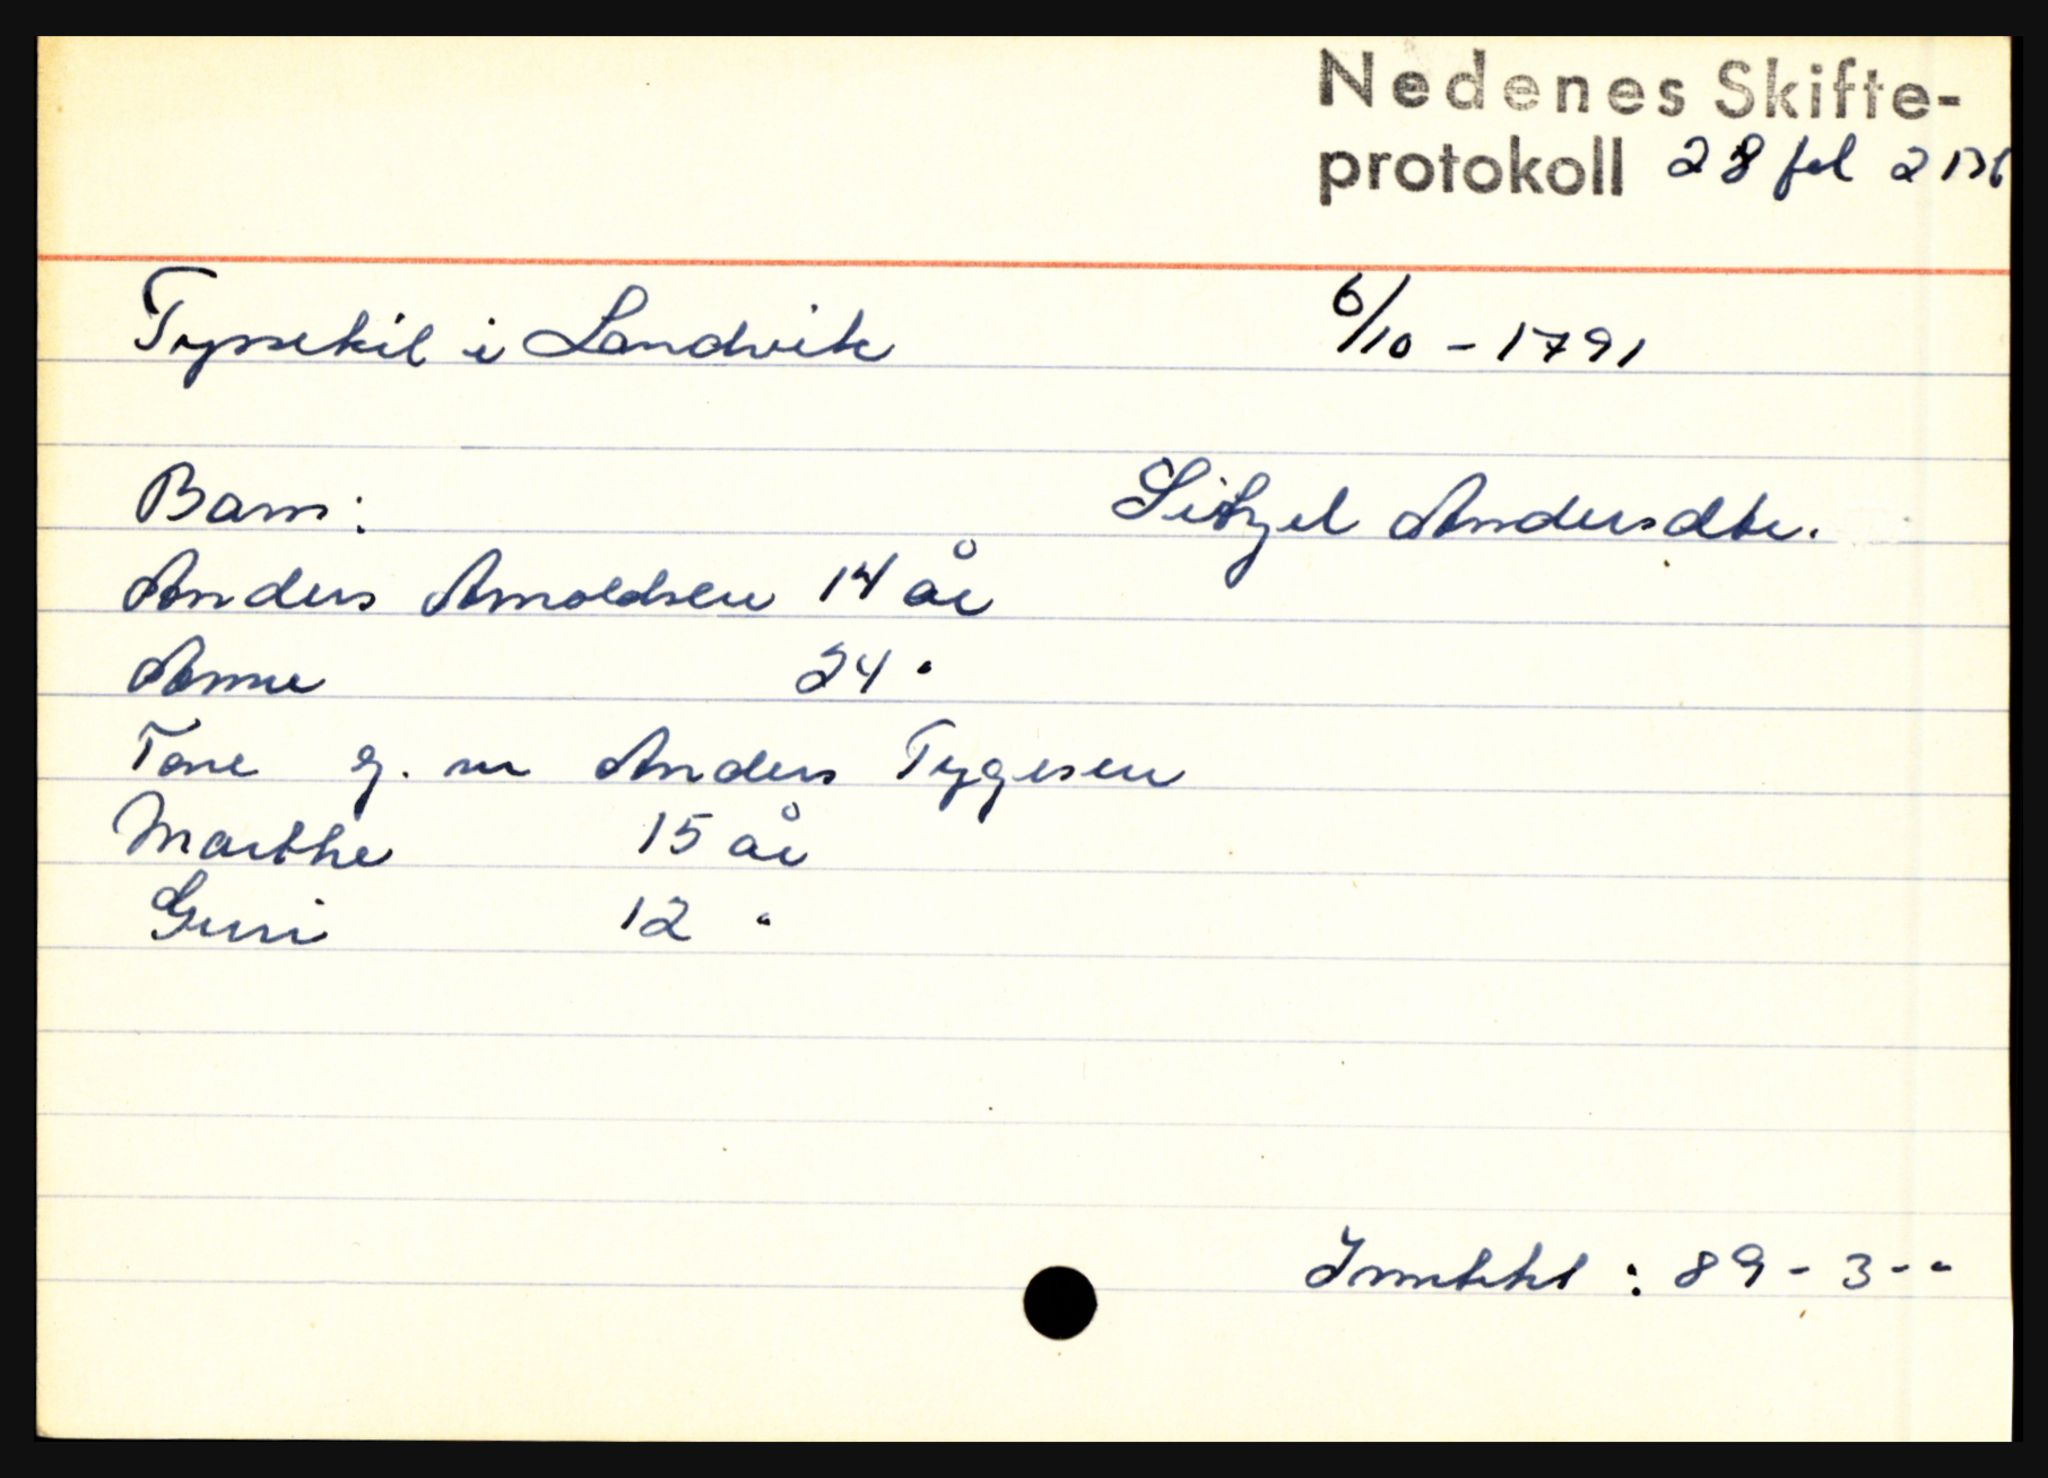 Nedenes Skifte-
protokoll 28 fol
Tyssekil i Landvik 6/10 - 1791
Barn: Sitzel Andersdtr.
Anders Arnoldsen 14 år
Anne 24 "
Tone g. m Anders Tygesen
Marthe 15 år
Guri 12 "
: 89 - 3 - -